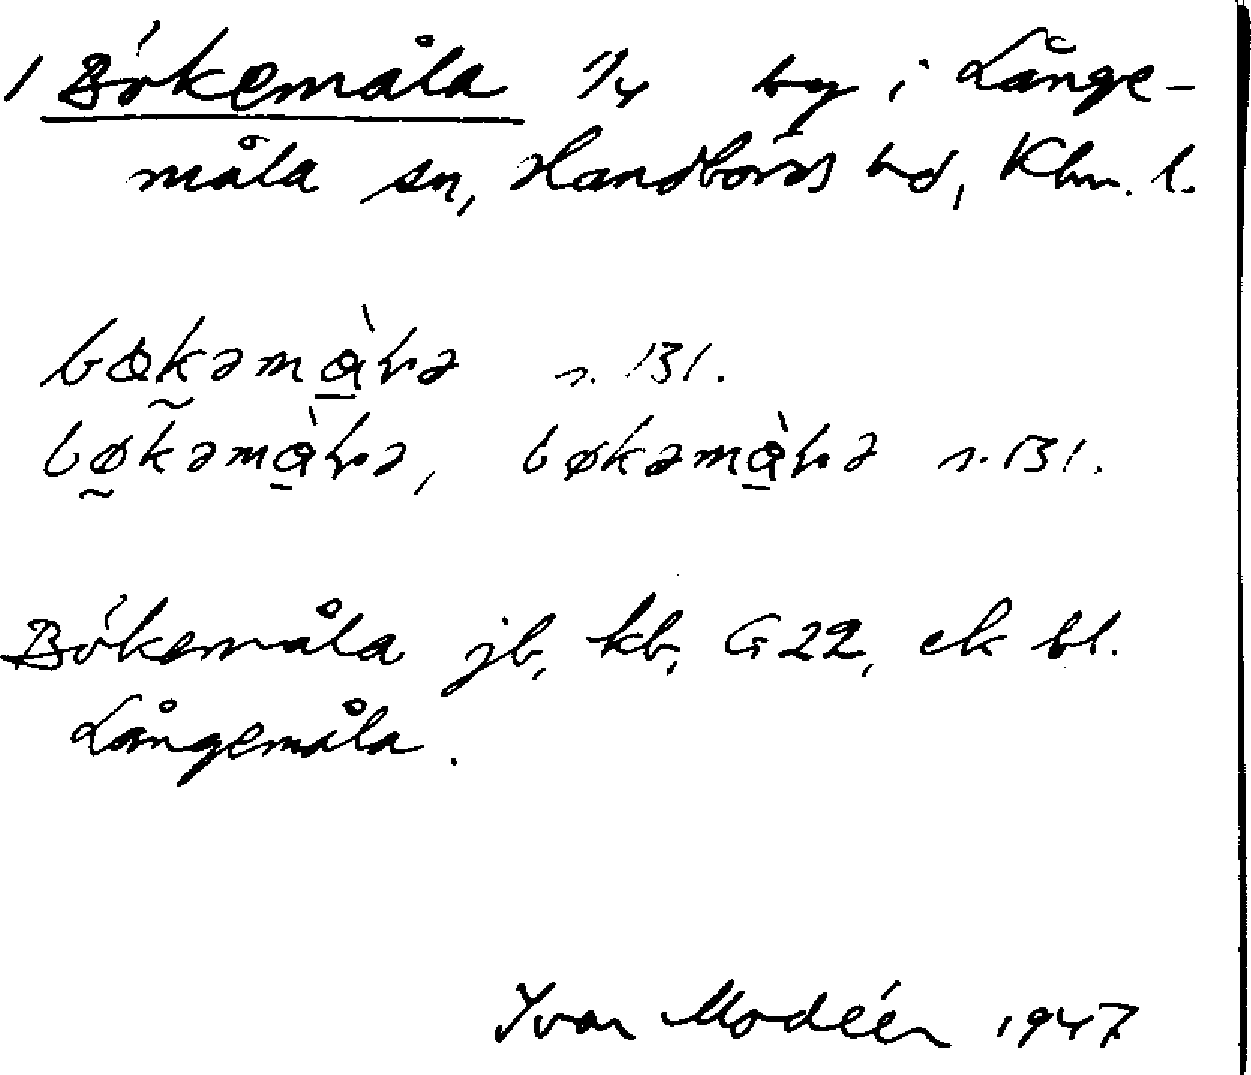 1 Bökemåla 1/4 by i Långe-
måla sn, Handbörds hd, Klm. l.
bœkəmɑ̀ɽə s. 131.
bøkəmɑ̀ɽə, bøkəmɑ̀ɽə s. 131.
Bökemåla jb, kb, G22, ek bl.
Långemåla.
Yvar Modéer 1947